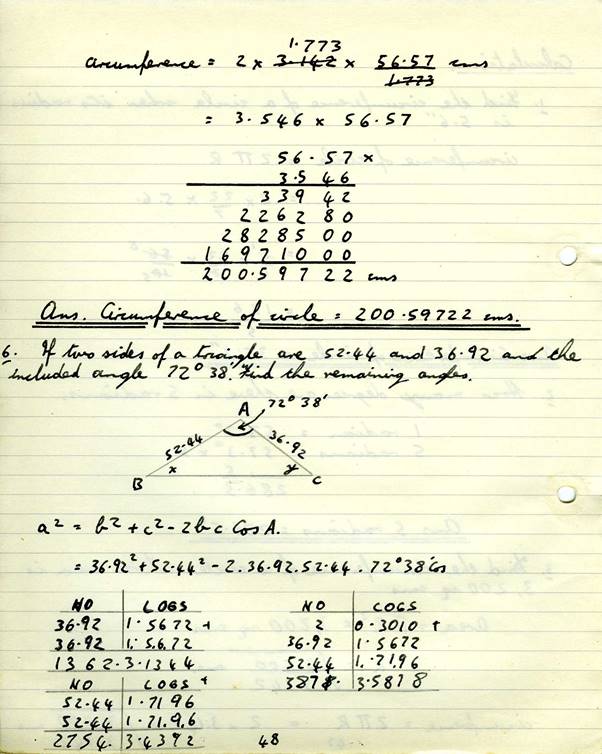 1.773
Circumference = 2 × 3.142 × 56.57 cms
1.773
= 3.546 × 56.57
56.57 ×
3.546
33942
226280
2828500
16971000
200.59722 cms
Ans. Circumference of circle = 200.59722 cms.
6. If two sides of a triangle are 52.44 and 36.92 and the
included angle 72° 38'. Find the remaining angles.
72° 38'
A
52.44
36.92
x
y
B
C
a² = b² + c² - 2bc Cos A.
= 36.92² + 52.44² - 2.36.92.52.44.72°38' Cos
NO LOGS
36.92 1.5672 +
36.92 1.5672
1362. 3.1344
NO LOGS +
52.44 1.7196
52.44 1.7196
2754. 3.4392
NO LOGS
2 0.3010 +
36.92 1.5672
52.44 1.7196
3878. 3.5878
48